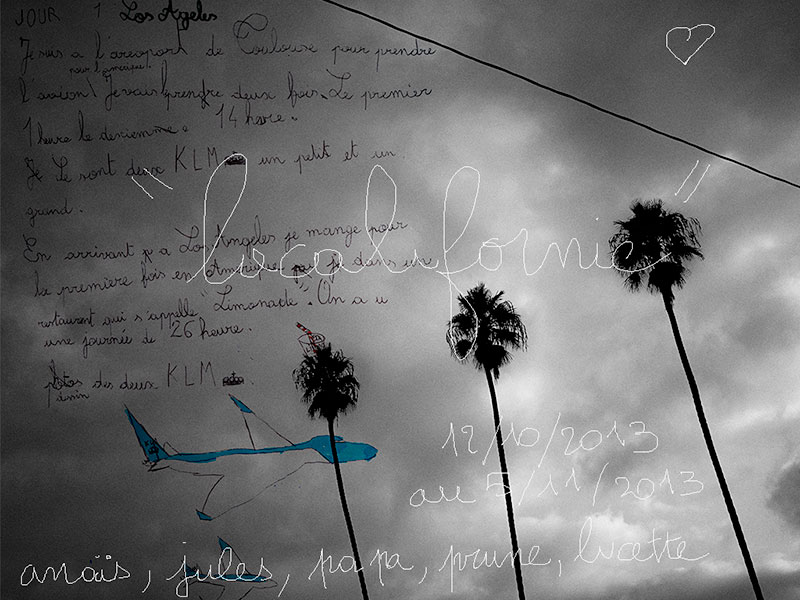 JOUR 1 Los Ageles
Je suis a l'areoport de Toulouse pour prendre
pour l'amérique.
l'avion! Je vais prendre deux fois. Le premier
1 heure le desciemme 14 heure.
Je Le sont deux KLM un petit et un
grand.
"lecalifornie"
En arrivant a Los Angeles je mange pour
la première fois en Amérique je dans un
restaurant qui s'appelle "Limonade". On a u
une journée de 26 heure.
photos des deux KLM
dessin
12/10/2013
au 5/11/2013
anaïs, jules, papa, prune, lucette